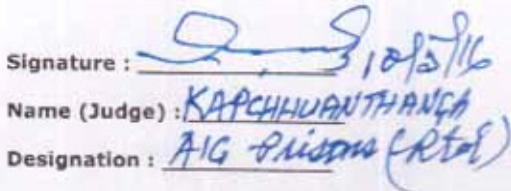 Signature : 10/5/16
Name (Judge) : KAPCHHUANTHANGA
Designation : AIG Prisons (Rtd)